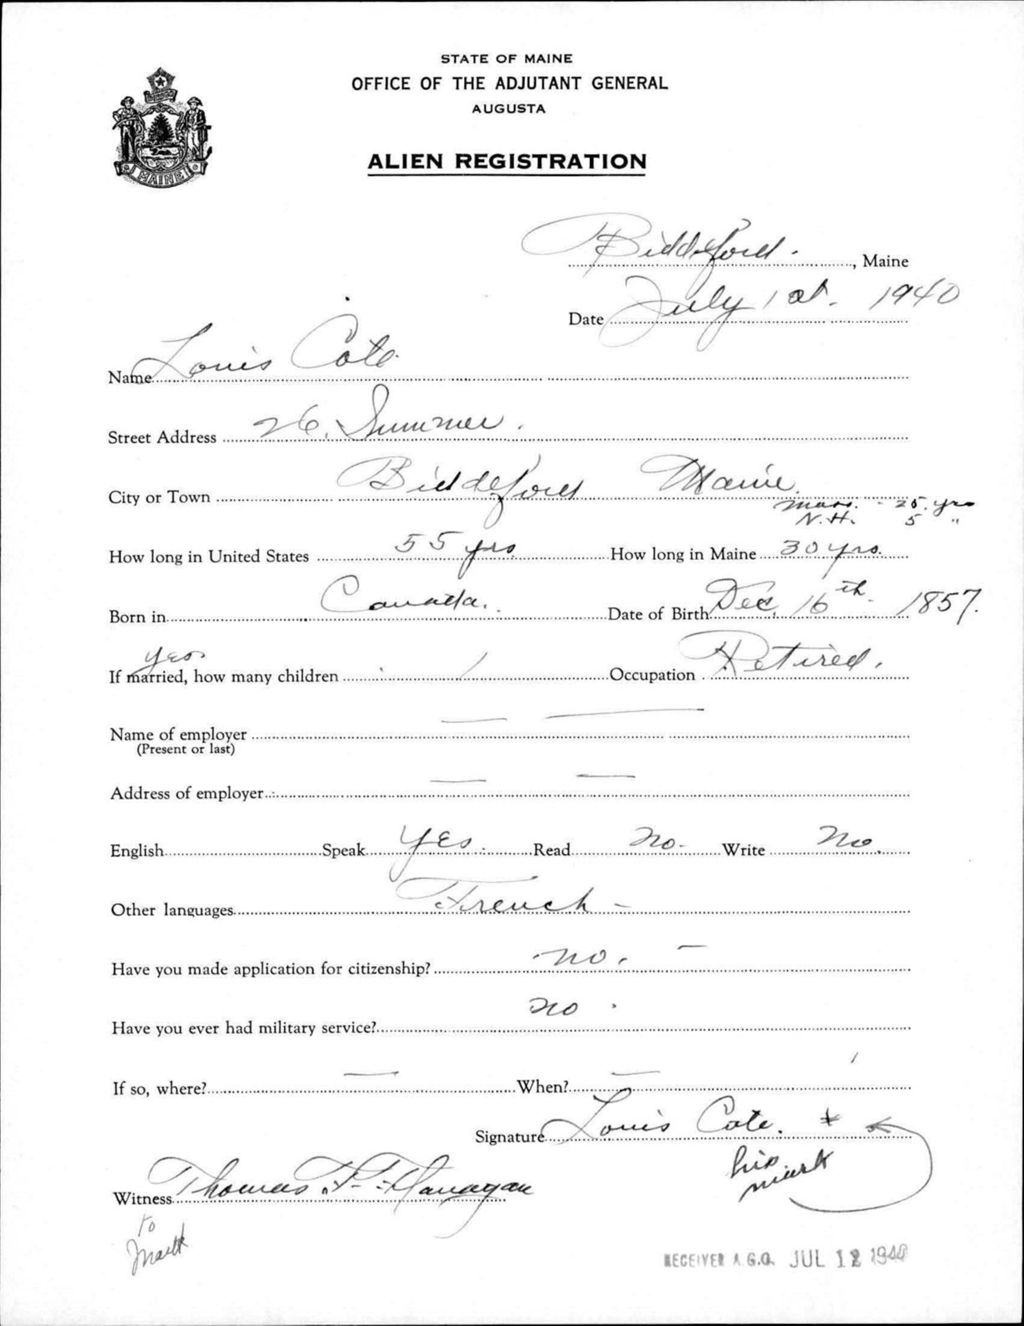 STATE OF MAINE
OFFICE OF THE ADJUTANT GENERAL
AUGUSTA
MAINE
ALIEN REGISTRATION
Biddeford., Maine
Date July 1st. 1940
Name Louis Cote
Street Address 26. Summer.
City or Town Biddeford Maine.
Mass. - 25. yrs
N.H. 5 "
How long in United States 55 yrs How long in Maine 30 yrs.
Born in Canada. Date of Birth Dec. 16th. 1857.
yes
If married, how many children 1 Occupation Retired.
Name of employer — —
(Present or last)
Address of employer — —
English Speak Yes. Read No. Write No.
Other languages French -
Have you made application for citizenship? no. —
Have you ever had military service? no.
If so, where? — When? —
Signature Louis Cote.
his
mark
Witness Thomas F. Flanagan
to
Mark
RECEIVED A.G.O. JUL 12 1940